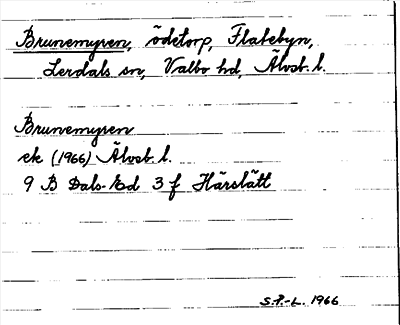 Brunemyren, ödetorp, Flatebyn,
Lerdals sn, Valbo hd, Älvsb. l.
Brunemyren
ek (1966) Älvsb. l.
9 B Dals-Ed 3 f Härslätt
S.P.-L. 1966